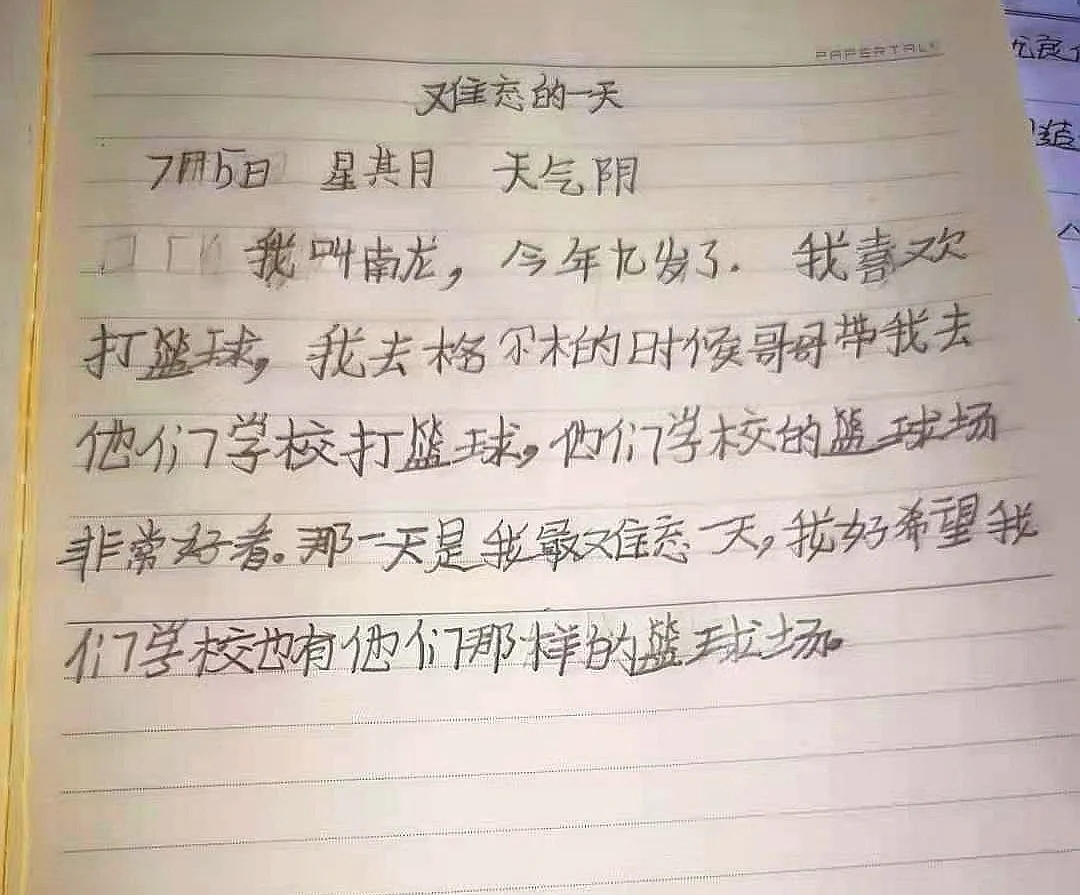 PAPERTALK
难忘的一天
7月5日 星其月 天气阴
我叫南龙，今年九岁了. 我喜欢
打篮球，我去格尔木的时候哥哥带我去
他们学校打篮球，他们学校的篮球场
非常好看。那一天是我最难忘一天，我好希望我
们学校也有他们那样的篮球场。